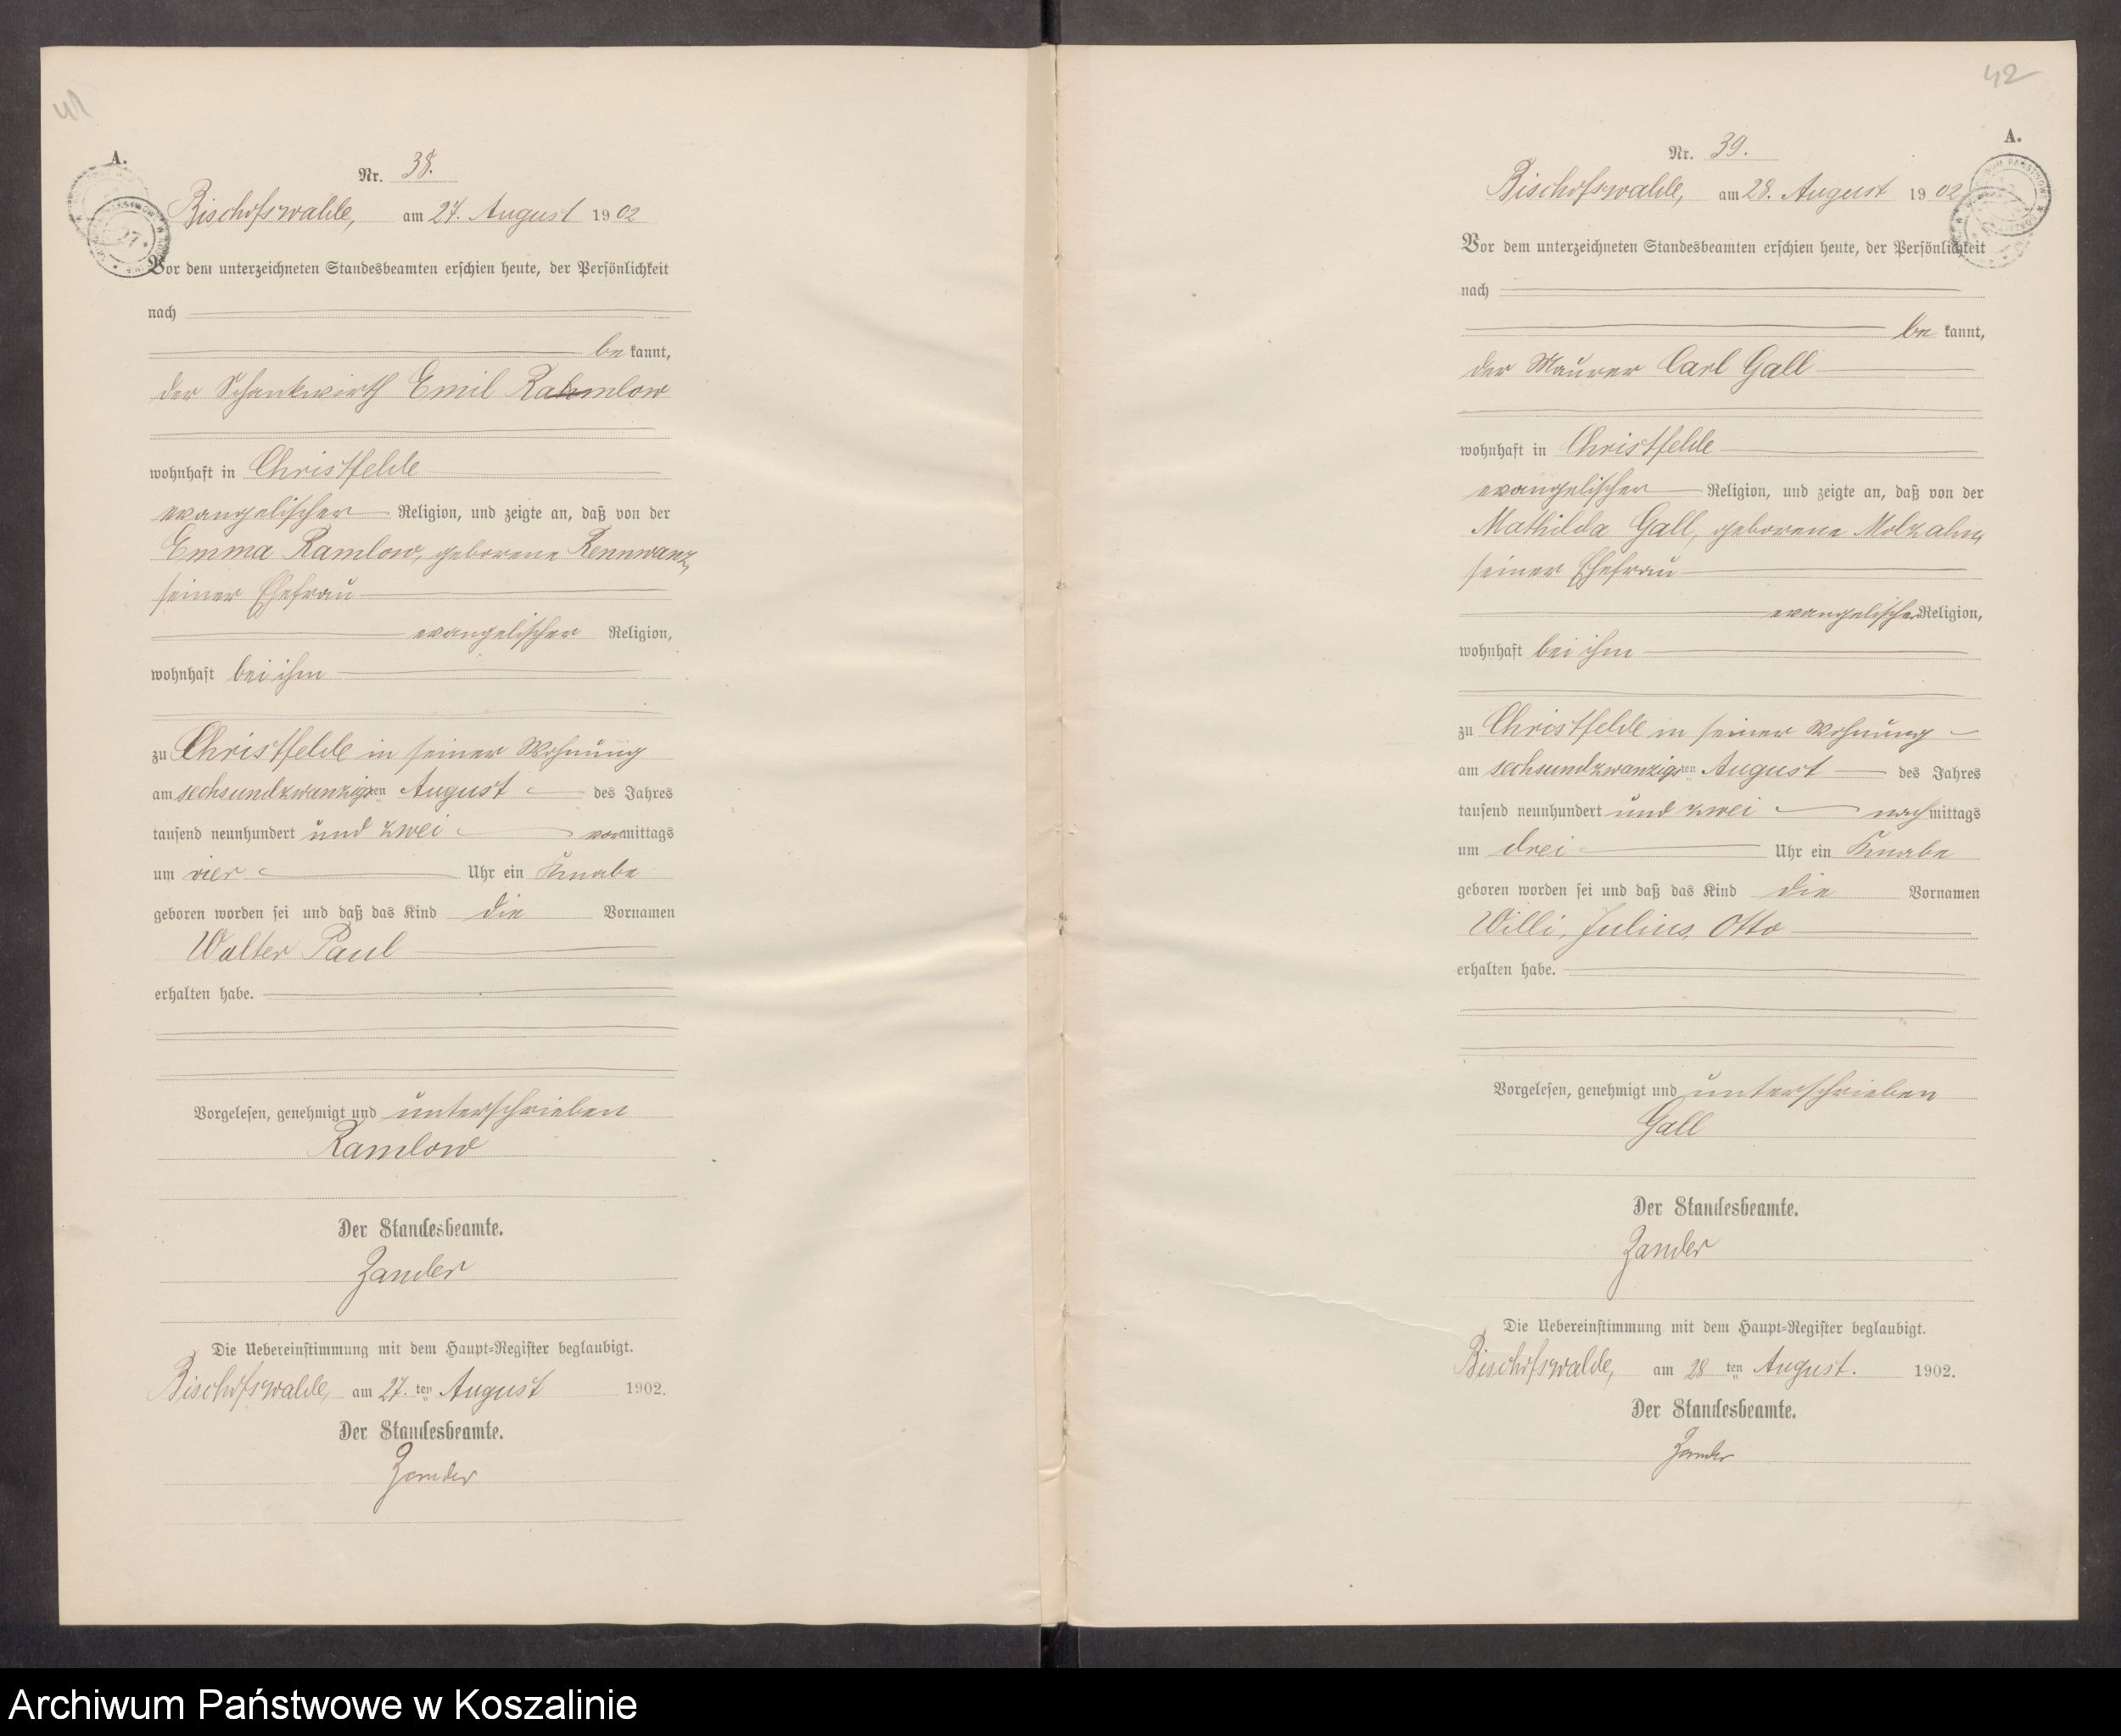 41
A.
Nr. 38.
Bischofswalde, am 27. August 1902
Vor dem unterzeichneten Standesbeamten erschien heute, der Persönlichkeit
nach
be kannt,
der Schankwirth Emil Rahmlow
wohnhaft in Christfelde
evangelischer Religion, und zeigte an, daß von der
Emma Ramlow, geborene Rennwanz,
seiner Ehefrau
evangelischer Religion,
wohnhaft bei ihm
zu Christfelde in seiner Wohnung
am sechsundzwanzigsten August des Jahres
tausend neunhundert und zwei vormittags
um vier Uhr ein Knabe
geboren worden sei und daß das Kind die Vornamen
Walter Paul
erhalten habe.
Vorgelesen, genehmigt und unterschrieben
Ramlow
Der Standesbeamte.
Zander
Die Uebereinstimmung mit dem Haupt=Register beglaubigt.
Bischofswalde, am 27. ten August 1902.
Der Standesbeamte.
Zander
42
A.
Nr. 39.
Bischofswalde, am 28. August 1902
Vor dem unterzeichneten Standesbeamten erschien heute, der Persönlichkeit
nach
be kannt,
der Maurer Carl Gall
wohnhaft in Christfelde
evangelischer Religion, und zeigte an, daß von der
Mathilda Gall, geborene Molzahn,
seiner Ehefrau
evangelischer Religion,
wohnhaft bei ihm
zu Christfelde in seiner Wohnung
am sechsundzwanzigsten August des Jahres
tausend neunhundert und zwei nachmittags
um drei Uhr ein Knabe
geboren worden sei und daß das Kind die Vornamen
Willi, Julius, Otto
erhalten habe.
Vorgelesen, genehmigt und unterschrieben
Gall
Der Standesbeamte.
Zander
Die Uebereinstimmung mit dem Haupt=Register beglaubigt.
Bischofswalde, am 28 ten August. 1902.
Der Standesbeamte.
Zander
Archiwum Państwowe w Koszalinie